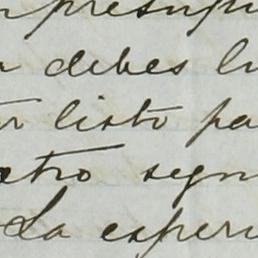 presupu
debes
listo pa
otro segu
La experi